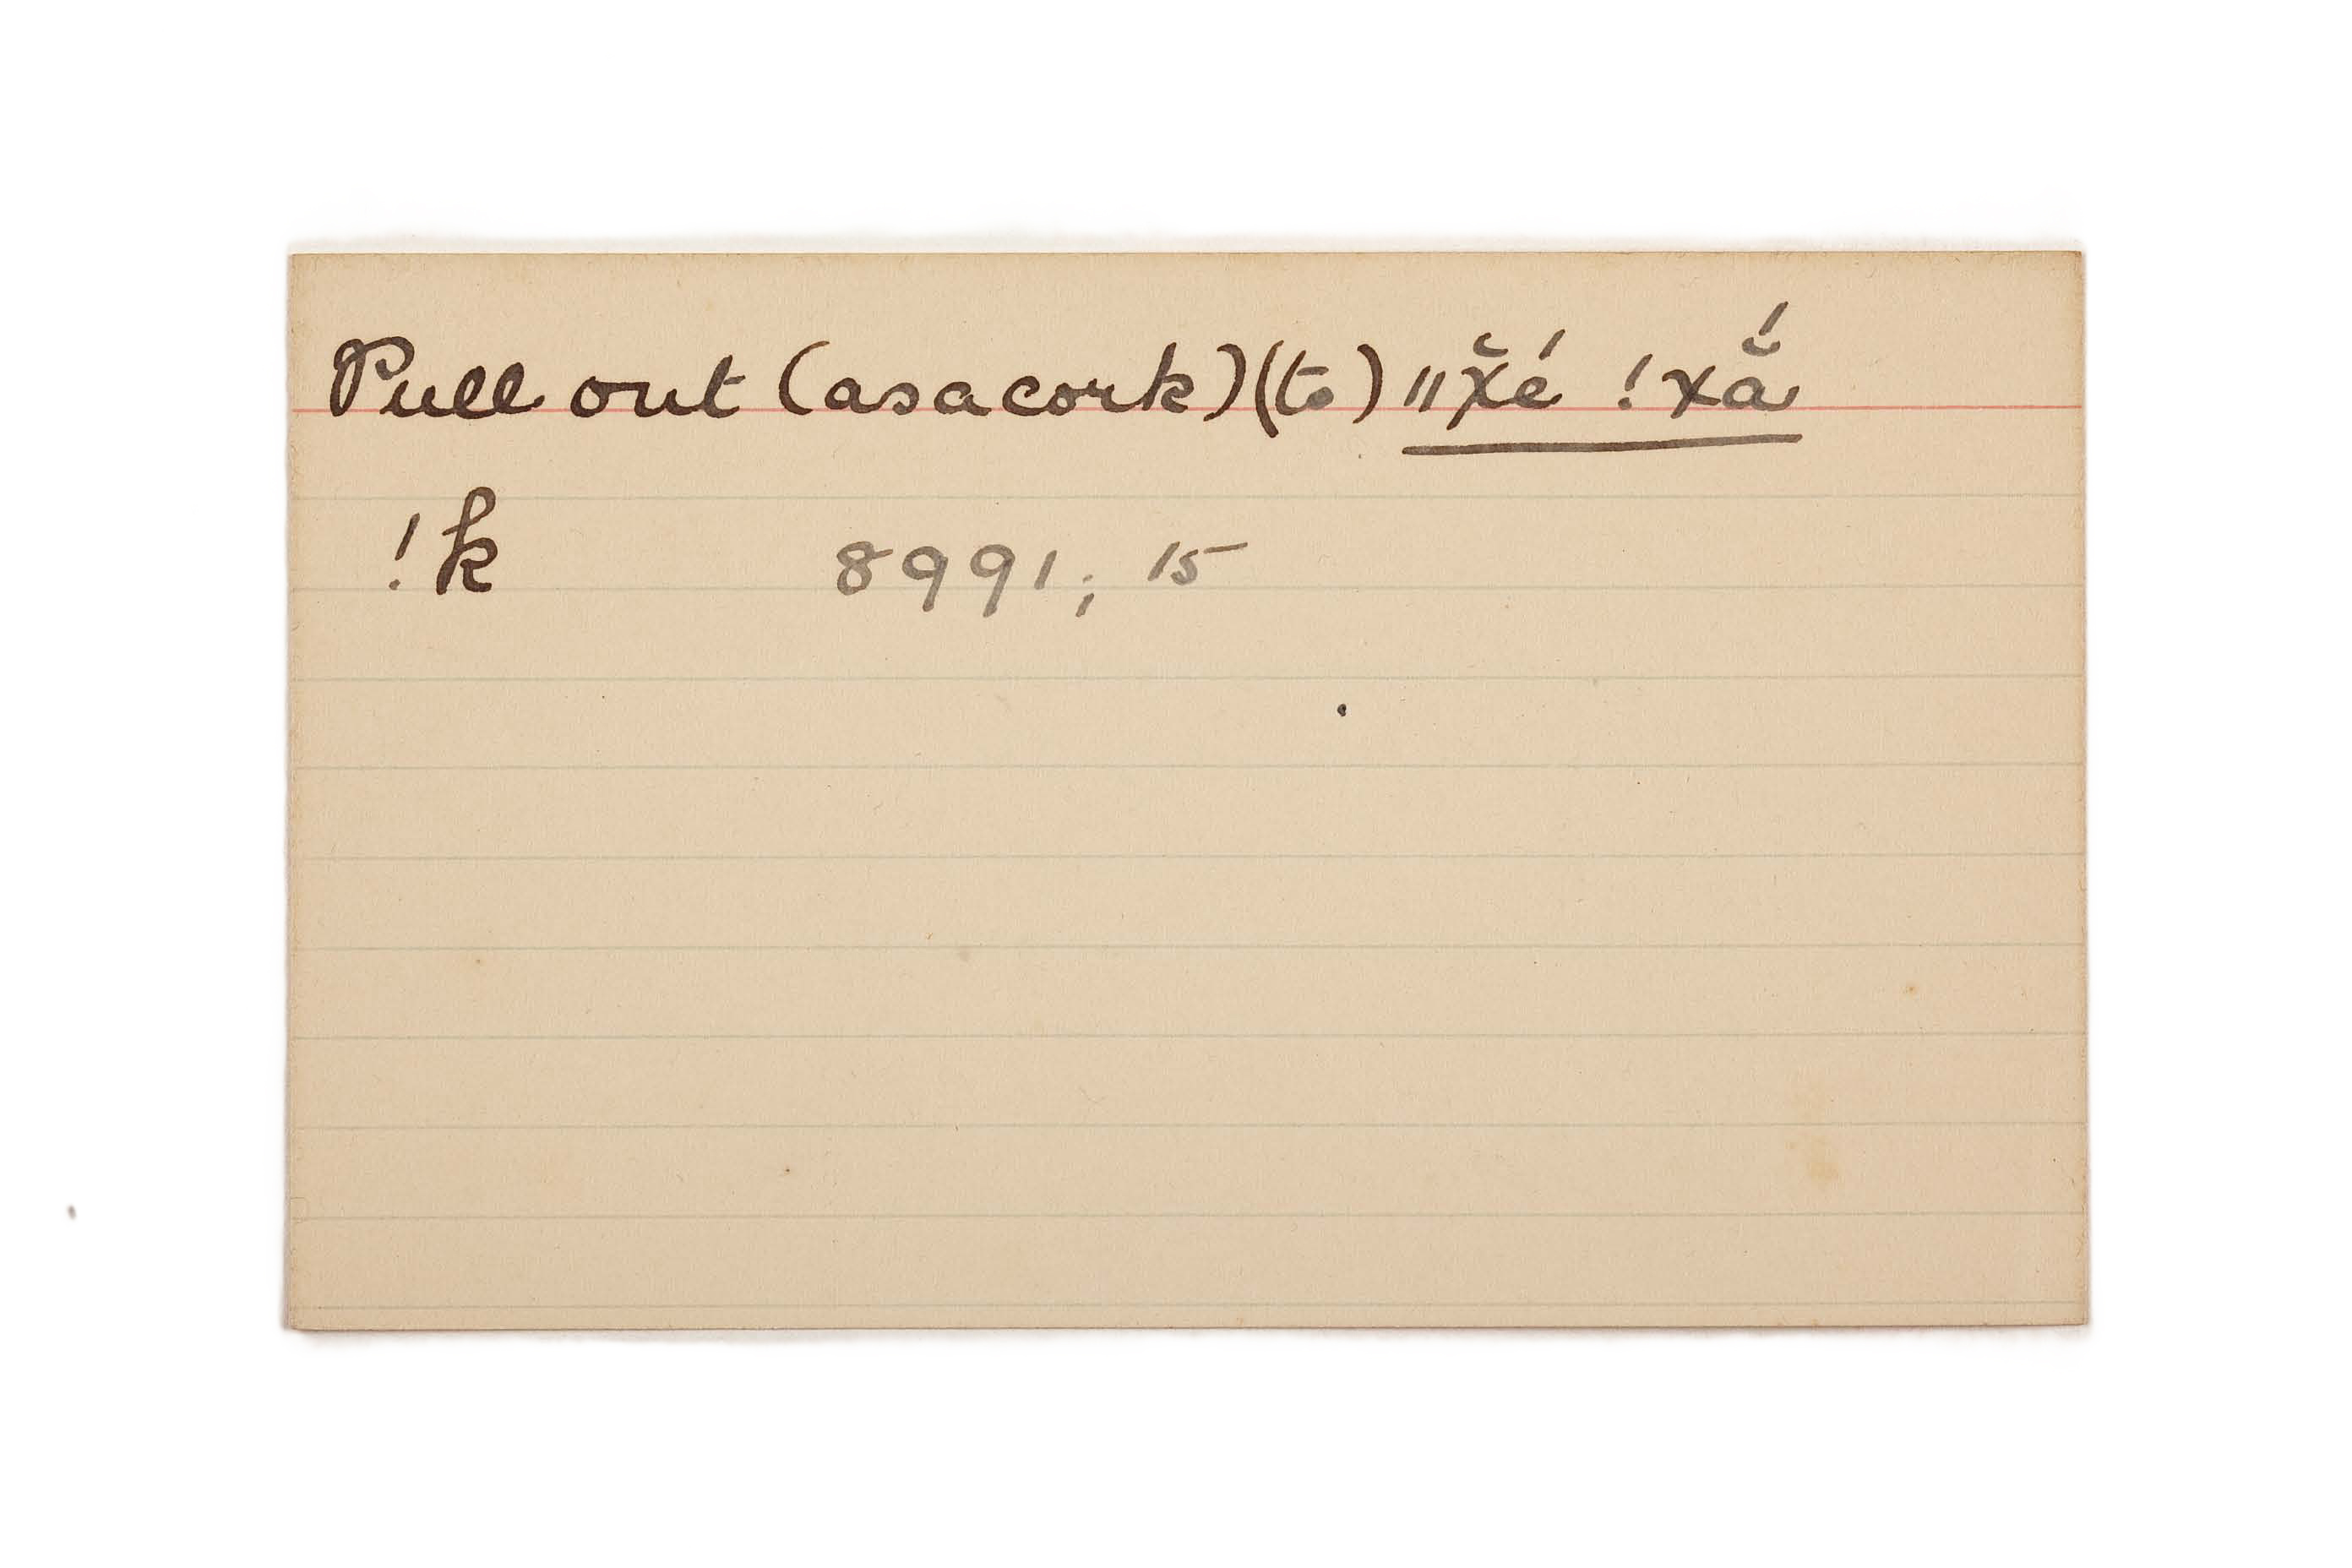 Pull out (as a cork) (to) ǁχ̆é !χắ
!k 8991; 15